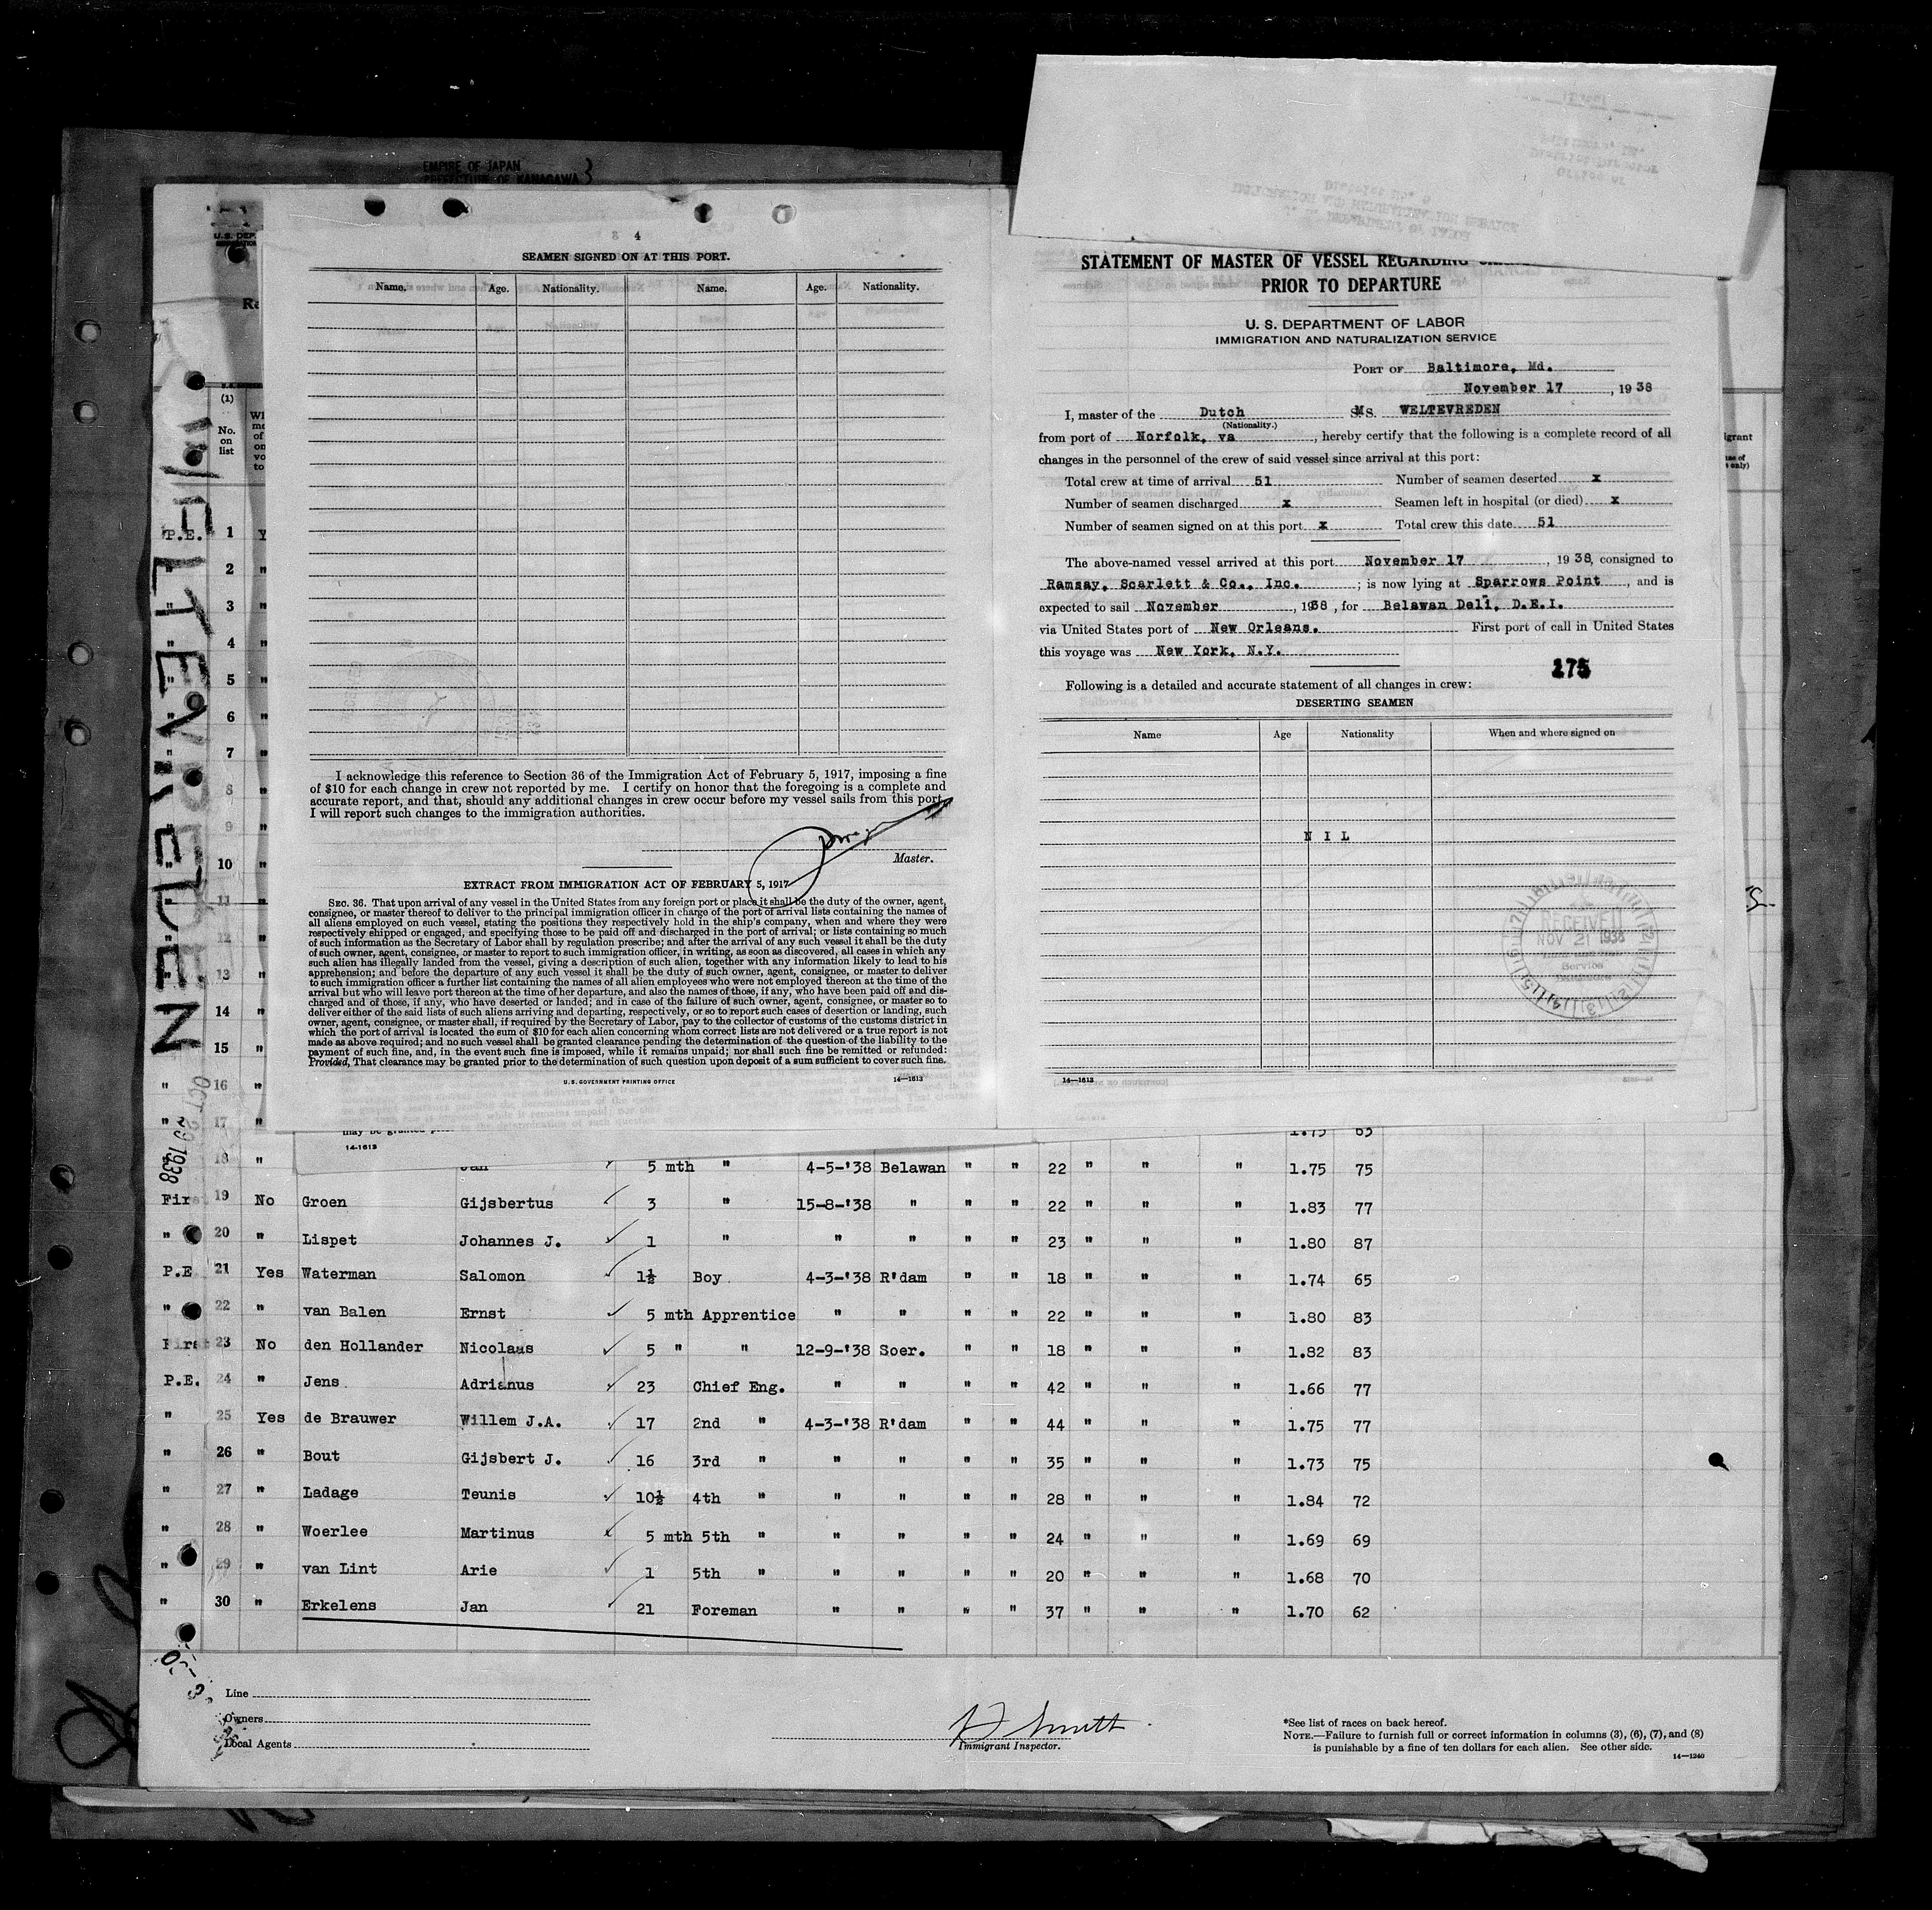 EMPIRE OF JAPAN
PREFECTURE OF KANAGAWA 3
4
SEAMEN SIGNED ON AT THIS PORT.
Name. Age. Nationality. Name. Age. Nationality.
I acknowledge this reference to Section 36 of the Immigration Act of February 5, 1917, imposing a fine
of $10 for each change in crew not reported by me. I certify on honor that the foregoing is a complete and
accurate report, and that, should any additional changes in crew occur before my vessel sails from this port,
I will report such changes to the immigration authorities.
Master.
EXTRACT FROM IMMIGRATION ACT OF FEBRUARY 5, 1917
SEC. 36. That upon arrival of any vessel in the United States from any foreign port or place it shall be the duty of the owner, agent,
consignee, or master thereof to deliver to the principal immigration officer in charge of the port of arrival lists containing the names of
all aliens employed on such vessel, stating the positions they respectively hold in the ship's company, when and where they were
respectively shipped or engaged, and specifying those to be paid off and discharged in the port of arrival; or lists containing so much
of such information as the Secretary of Labor shall by regulation prescribe; and after the arrival of any such vessel it shall be the duty
of such owner, agent, consignee, or master to report to such immigration officer, in writing, as soon as discovered, all cases in which any
such alien has illegally landed from the vessel, giving a description of such alien, together with any information likely to lead to his
apprehension; and before the departure of any such vessel it shall be the duty of such owner, agent, consignee, or master to deliver
to such immigration officer a further list containing the names of all alien employees who were not employed thereon at the time of the
arrival but who will leave port thereon at the time of her departure, and also the names of those, if any, who have been paid off and dis-
charged and of those, if any, who have deserted or landed; and in case of the failure of such owner, agent, consignee, or master so to
deliver either of the said lists of such aliens arriving and departing, respectively, or so to report such cases of desertion or landing, such
owner, agent, consignee, or master shall, if required by the Secretary of Labor, pay to the collector of customs of the customs district in
which the port of arrival is located the sum of $10 for each alien concerning whom correct lists are not delivered or a true report is not
made as above required; and no such vessel shall be granted clearance pending the determination of the question of the liability to the
payment of such fine, and, in the event such fine is imposed, while it remains unpaid; nor shall such fine be remitted or refunded:
Provided, That clearance may be granted prior to the determination of such question upon deposit of a sum sufficient to cover such fine.
U.S. GOVERNMENT PRINTING OFFICE 14—1613
STATEMENT OF MASTER OF VESSEL REGARDING
PRIOR TO DEPARTURE
U. S. DEPARTMENT OF LABOR
IMMIGRATION AND NATURALIZATION SERVICE
PORT OF Baltimore, Md.
November 17, 1938
I, master of the Dutch MS. WELTEVREDEN
(Nationality.)
from port of Norfolk, va, hereby certify that the following is a complete record of all
changes in the personnel of the crew of said vessel since arrival at this port:
Total crew at time of arrival 51 Number of seamen deserted x
Number of seamen discharged x Seamen left in hospital (or died) x
Number of seamen signed on at this port x Total crew this date 51
The above-named vessel arrived at this port November 17, 1938, consigned to
Ramsay, Scarlett & Co., Inc. ; is now lying at Sparrows Point, and is
expected to sail November, 1938, for Belawan Deli, D.E.I.
via United States port of New Orleans. First port of call in United States
this voyage was New York, N.Y.
175
Following is a detailed and accurate statement of all changes in crew:
DESERTING SEAMEN
Name Age Nationality When and where signed on
N I L
RECEIVED
NOV 21 1938
Service
14—1613
WELTEVREDEN
OCT 29 1938
U.S. DEP
(1)
No.
on
list
P.E. 1 Y
" 2 "
" 3 "
" 4 "
" 5 "
" 6 "
" 7 "
" 8 "
9 "
10 "
11 "
12 "
13 "
14 "
15 "
" 16 "
" 17 " 1.75 63
14-1613
18 " Jan 5 mth " 4-5-'38 Belawan " " 22 " " " 1.75 75
First 19 No Groen Gijsbertus 3 " 15-8-'38 " " " 22 " " " 1.83 77
" 20 " Lispet Johannes J. 1 " " " " " 23 " " " 1.80 87
P.E 21 Yes Waterman Salomon 1½ Boy 4-3-'38 R'dam " " 18 " " " 1.74 65
" 22 " van Balen Ernst 5 mth Apprentice " " " " 22 " " " 1.80 83
First 23 No den Hollander Nicolaas 5 " " 12-9-'38 Soer. " " 18 " " " 1.82 83
P.E. 24 " Jens Adrianus 23 Chief Eng. " " " " 42 " " " 1.66 77
" 25 Yes de Brauwer Willem J.A. 17 2nd " 4-3-'38 R'dam " " 44 " " " 1.75 77
" 26 " Bout Gijsbert J. 16 3rd " " " " " 35 " " " 1.73 75
" 27 " Ladage Teunis 10½ 4th " " " " " 28 " " " 1.84 72
" 28 " Woerlee Martinus 5 mth 5th " " " " " 24 " " " 1.69 69
" 29 " van Lint Arie 1 5th " " " " " 20 " " " 1.68 70
" 30 " Erkelens Jan 21 Foreman " " " " 37 " " " 1.70 62
Line
Owners
Local Agents
H Smith
Immigrant Inspector.
*See list of races on back hereof.
NOTE.—Failure to furnish full or correct information in columns (3), (6), (7), and (8)
is punishable by a fine of ten dollars for each alien. See other side.
14—1240